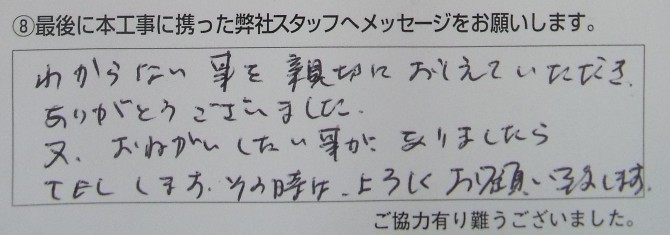 ⑧最後に本工事に携った弊社スタッフへメッセージをお願いします。
わからない事を親切におしえていただき、
ありがとうございました。
又、おねがいしたい事がありましたら
TELします。その時は、よろしくお願い致します。
ご協力有り難うございました。